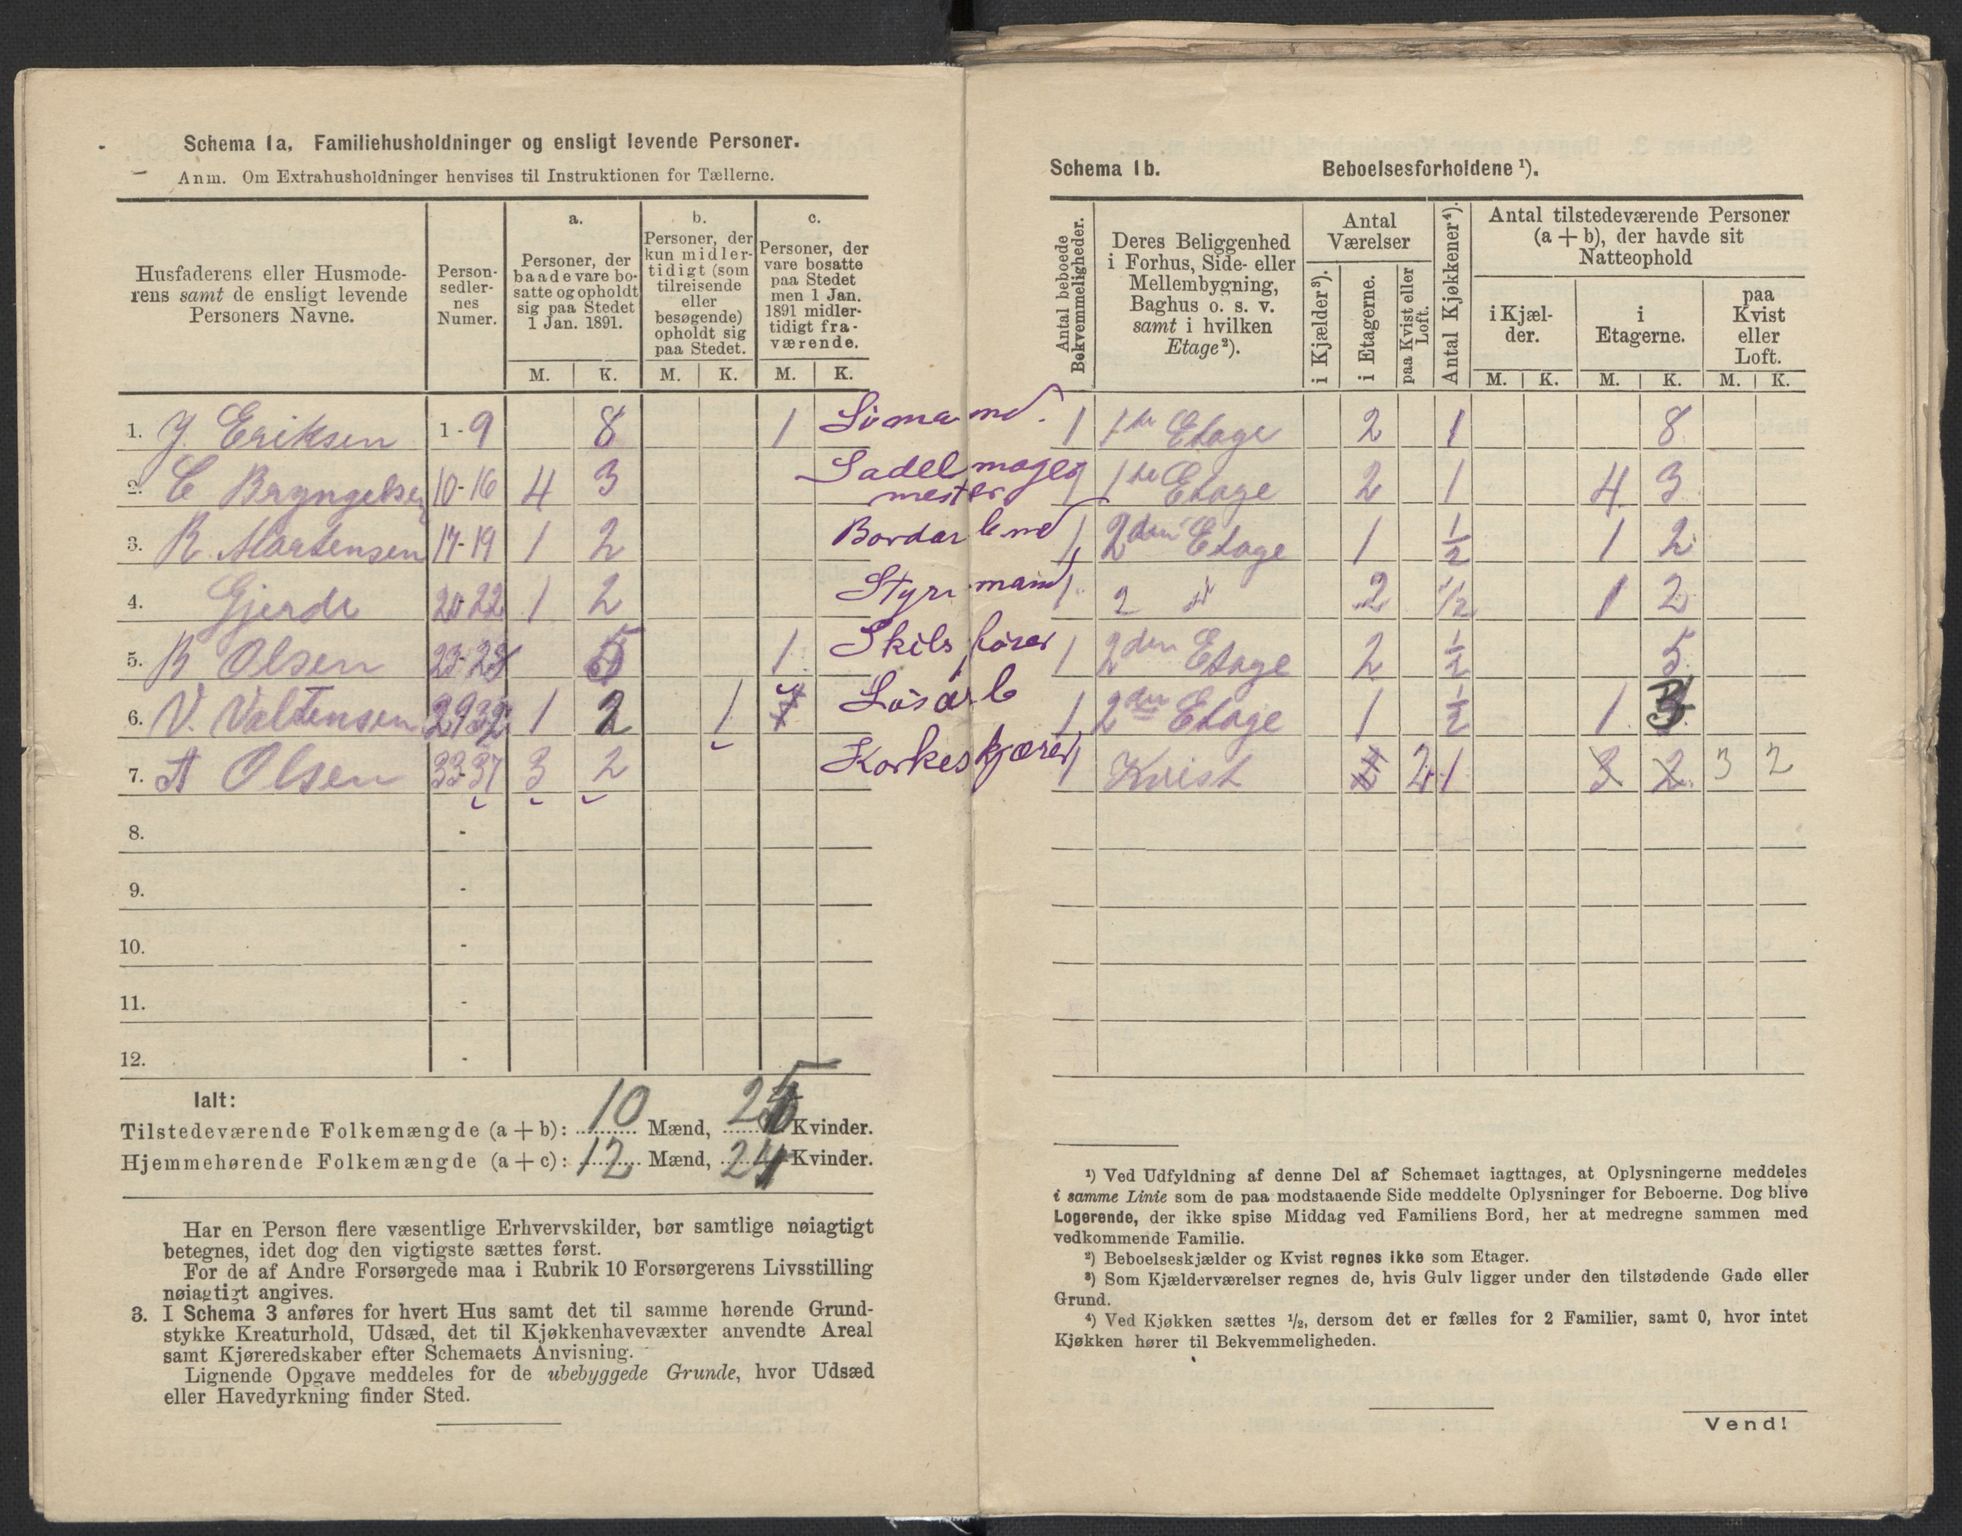 Schema 1a. Familiehusholdninger og ensligt levende Personer.
Anm. Om Extrahusholdninger henvises til Instruktionen for Tællerne.
Husfaderens eller Husmode-
rens samt de ensligt levende
Personers Navne.
Person-
sedler-
nes
Numer.
a.
Personer, der
baade vare bo-
satte og opholdt
sig paa Stedet
1 Jan. 1891.
b.
Personer, der
kun midler-
tidigt (som
tilreisende
eller
besøgende)
opholdt sig
paa Stedet.
c.
Personer, der
vare bosatte
paa Stedet
men 1 Jan.
1891 midler-
tidigt fra-
værende.
M. K. M. K. M. K.
1. J. Eriksen 1-9 8 1 Sömand.
2. E Bryngelsen 10-16 4 3 Sadelmager
mester
3. R. Martensen 17-19 1 2 Bordarbend
4. Gjerde 20-22 1 2 Styrmand
5. B Olsen 23-28 5 1 Skibsförer
6. V. Valtensen 29-32 1 2 1 Lösarb
7. A Olsen 33-37 3 2 Korkeskjærer
8. -
9. -
10. -
11. -
12. -
Ialt:
Tilstedeværende Folkemængde (a + b): 10 Mænd, 25 Kvinder.
Hjemmehørende Folkemængde (a + c): 12 Mænd, 24 Kvinder.
Har en Person flere væsentlige Erhvervskilder, bør samtlige nøiagtigt
betegnes, idet dog den vigtigste sættes først.
For de af Andre Forsørgede maa i Rubrik 10 Forsørgerens Livsstilling
nøiagtigt angives.
3. I Schema 3 anføres for hvert Hus samt det til samme hørende Grund-
stykke Kreaturhold, Udsæd, det til Kjøkkenhavevæxter anvendte Areal
samt Kjøreredskaber efter Schemaets Anvisning.
Lignende Opgave meddeles for de ubebyggede Grunde, hvor Udsæd
eller Havedyrkning finder Sted.
Schema 1b. Beboelsesforholdene ¹).
Antal beboede
Bekvemmeligheder.
Deres Beliggenhed
i Forhus, Side- eller
Mellembygning,
Baghus o. s. v.
samt i hvilken
Etage²).
Antal
Værelser
i Kjælder³).
i Etagerne.
paa Kvist eller
Loft.
Antal Kjøkkener⁴).
Antal tilstedeværende Personer
(a + b), der havde sit
Natteophold
i Kjæl-
der.
i
Etagerne.
paa
Kvist
eller
Loft.
M. K. M. K. M. K.
1 1ste Etage 2 1 8
1 1ste Etage 2 1 4 3
1 2den Etage 1 ½ 1 2
1 2 " 2 ½ 1 2
1 2den Etage 2 ½ 5
1 2den Etage 1 ½ 1 3
1 Kvist 2 2 1 3 2 3 2
¹) Ved Udfyldning af denne Del af Schemaet iagttages, at Oplysningerne meddeles
i samme Linie som de paa modstaaende Side meddelte Oplysninger for Beboerne. Dog blive
Logerende, der ikke spise Middag ved Familiens Bord, her at medregne sammen med
vedkommende Familie.
²) Beboelseskjælder og Kvist regnes ikke som Etager.
³) Som Kjælderværelser regnes de, hvis Gulv ligger under den tilstødende Gade eller
Grund.
⁴) Ved Kjøkken sættes ½, dersom det er fælles for 2 Familier, samt 0, hvor intet
Kjøkken hører til Bekvemmeligheden.
Vend!